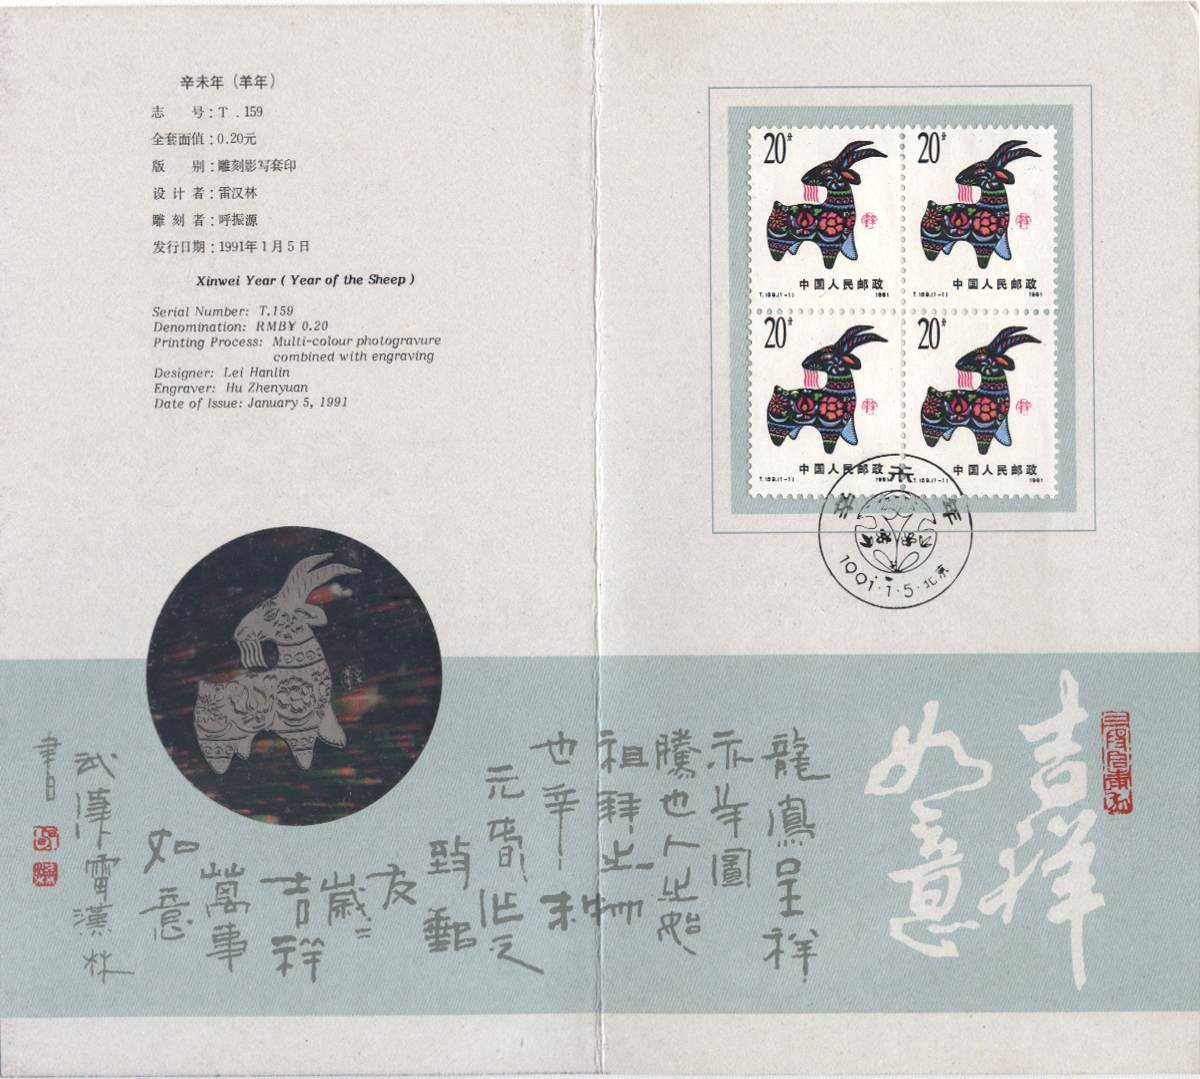 辛未年（羊年）
志　　号：T . 159
全套面值：0.20元
版　　别：雕刻影写套印
设 计 者：雷汉林
雕 刻 者：呼振源
发行日期：1991年1月5日
Xinwei Year ( Year of the Sheep )
Serial Number: T.159
Denomination: RMB¥ 0.20
Printing Process: Multi-colour photogravure
combined with engraving
Designer: Lei Hanlin
Engraver: Hu Zhenyuan
Date of Issue: January 5, 1991
20分
中国人民邮政
T.159.(1-1) 1991
20分
中国人民邮政
T.159.(1-1) 1991
20分
中国人民邮政
T.159.(1-1) 1991
20分
中国人民邮政
T.159.(1-1) 1991
辛未年
1991·1·5·北京
吉祥
如意
龍鳳呈祥
示羊圖
騰也人之始
祖拜之
也辛未
元春
致郵
友
歲=
吉祥
萬事
如意
武漢雷漢林
書